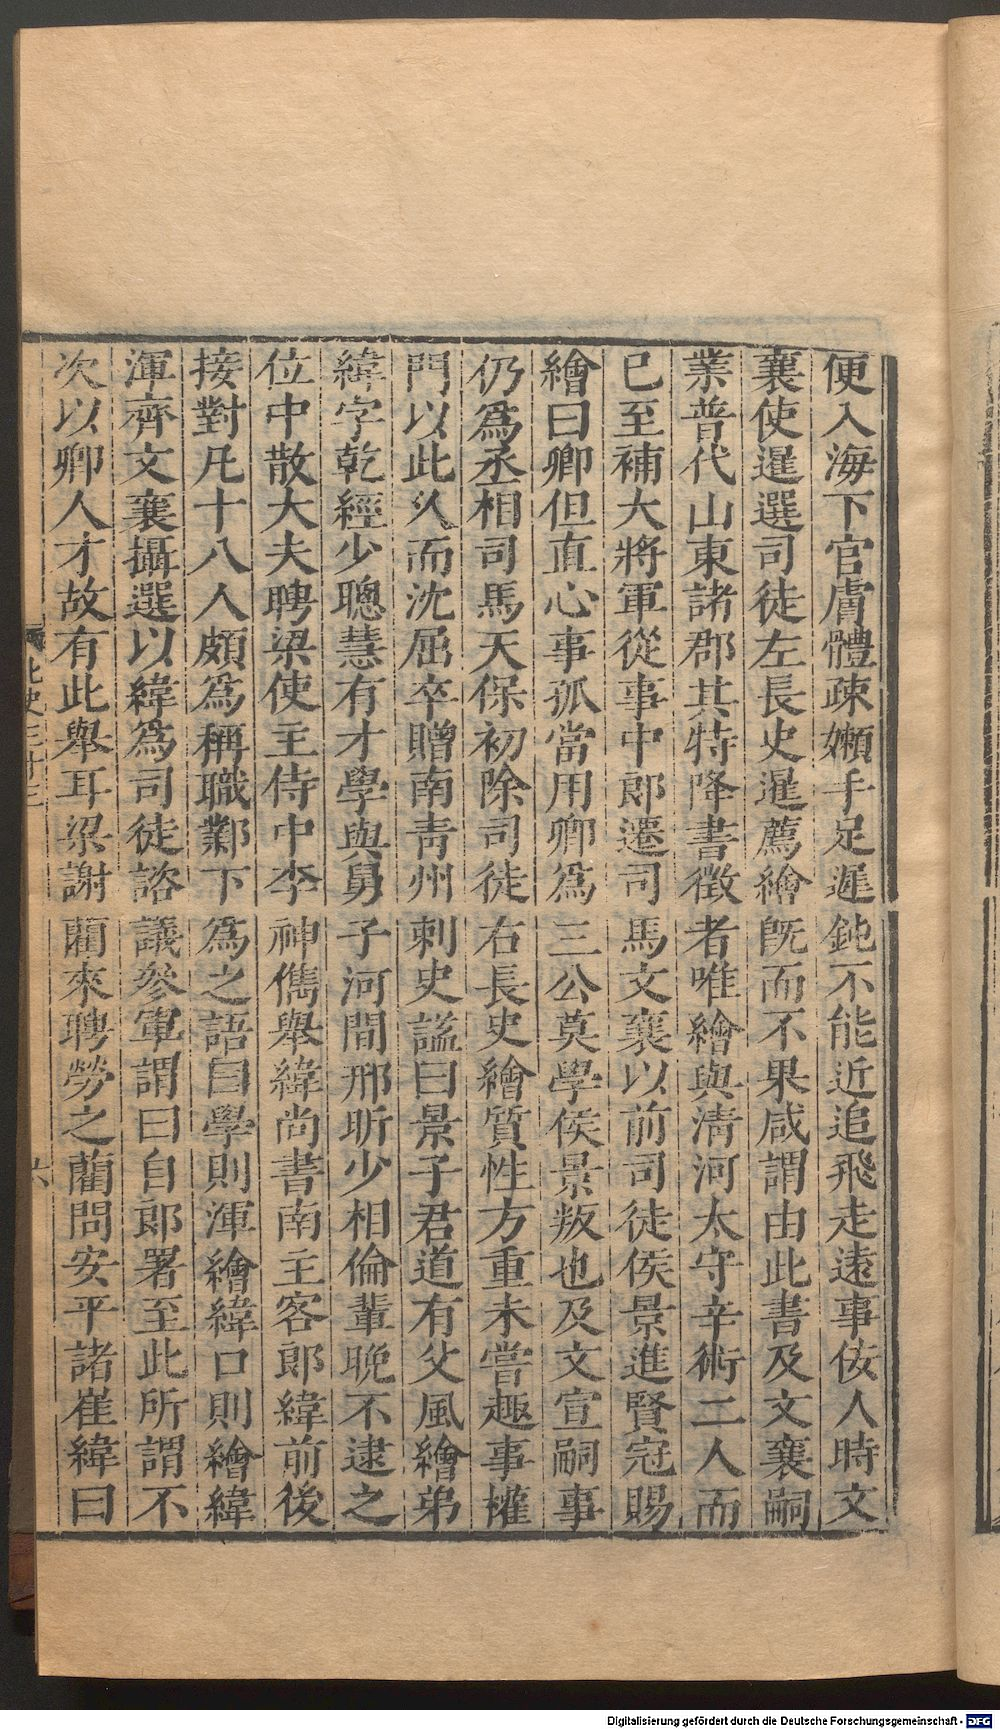 便入海下官膚體疎嬾手足遲鈍不能近追飛走遠事佞人時文
襄使暹選司徒左長史暹薦繪旣而不果咸謂由此書及文襄嗣
業普代山東諸郡其特降書徵者唯繪與清河太守辛術二人而
已至補大將軍從事中郎遷司馬文襄以前司徒侯景進賢冠賜
繪曰卿但直心事孤當用卿爲三公莫學侯景叛也及文宣嗣事
仍爲丞相司馬天保初除司徒右長史繪質性方重未嘗趣事權
門以此久而沈屈卒贈南青州刺史諡曰景子君道有父風繪弟
緯字乾經少聰慧有才學與舅子河間邢昕少相倫輩晚不逮之
位中散大夫聘梁使主侍中李神儁舉緯尚書南主客郎緯前後
接對凡十八人頗爲稱職鄴下爲之語曰學則渾繪緯口則繪緯
渾齊文襄攝選以緯爲司徒諮議參軍謂曰自郎署至此所謂不
次以卿人才故有此舉耳梁謝藺來聘勞之藺問安平諸崔緯曰
北史三十三
六
Digitalisierung gefördert durch die Deutsche Forschungsgemeinschaft - DFG